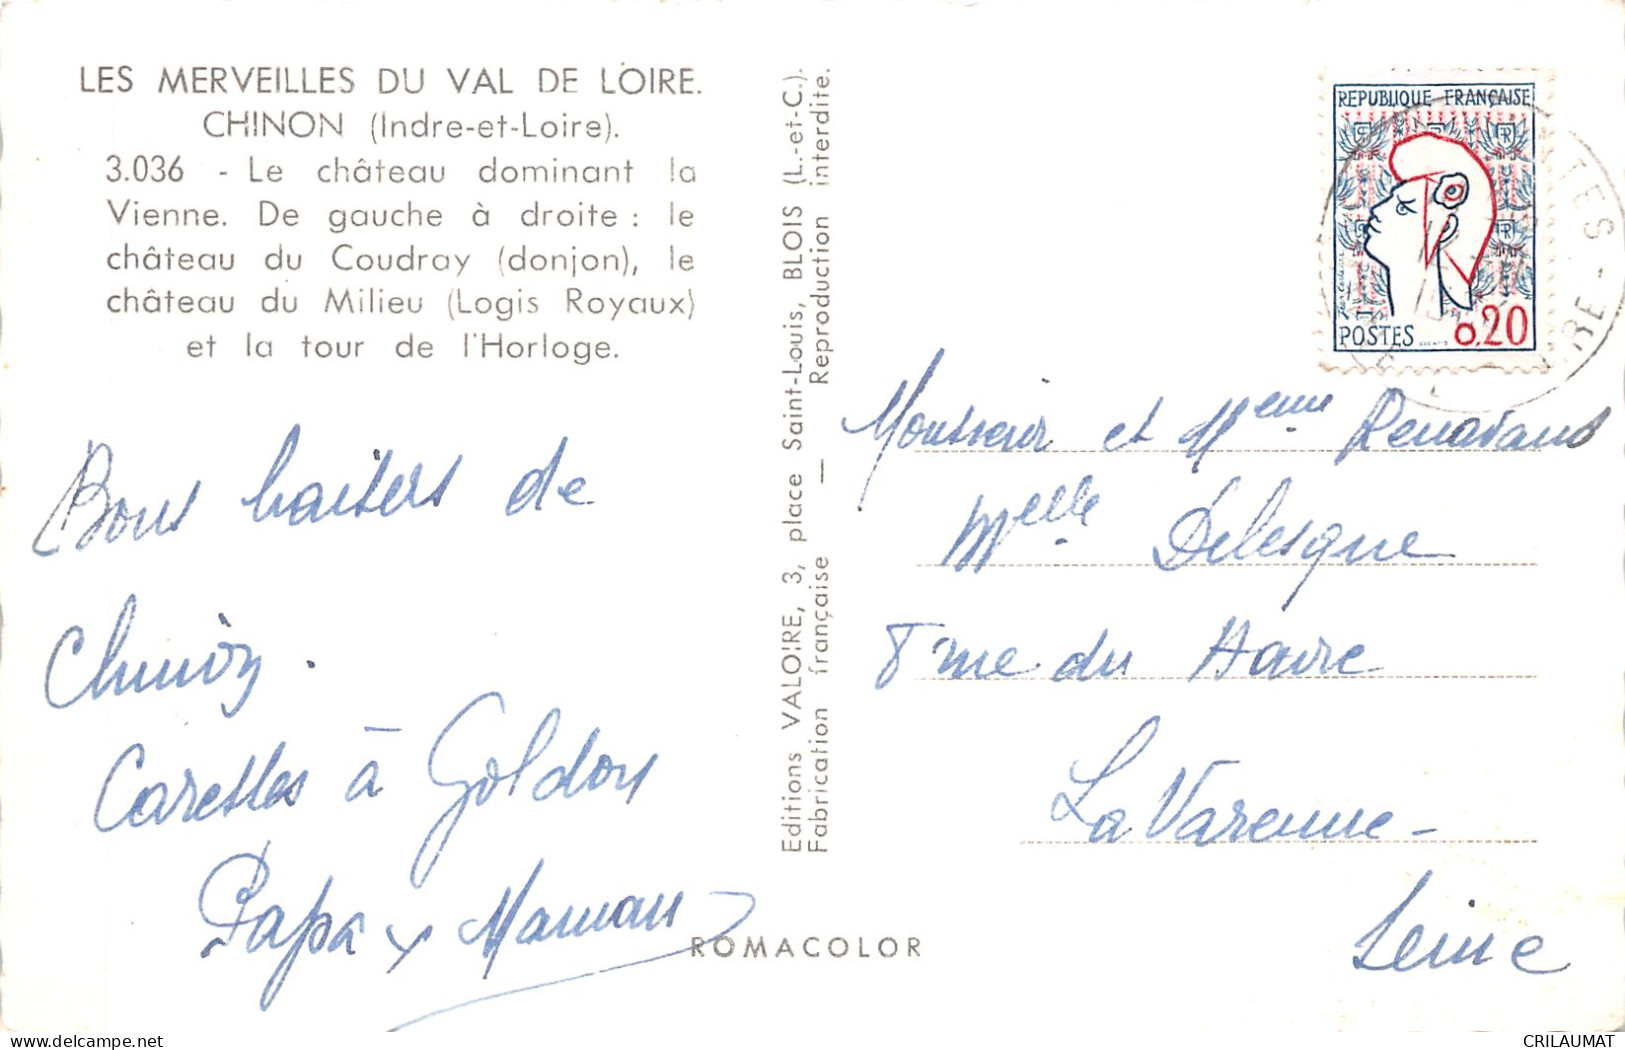 LES MERVEILLES DU VAL DE LOIRE.
CHINON (Indre-et-Loire).
3.036 - Le château dominant la
Vienne. De gauche à droite : le
château du Coudray (donjon), le
château du Milieu (Logis Royaux)
et la tour de l'Horloge.
Bons baisers de
Chinon.
Caresses à Goldon
Papa & Maman
Editions VALOIRE, 3, place Saint-Louis, BLOIS (L.-et-C.).
Fabrication française — Reproduction interdite.
ROMACOLOR
REPUBLIQUE FRANÇAISE
POSTES 0,20
Monsieur et Meme
Melle Delesque
8 rue du Havre
La Varenne -
Seine
CRILAUMAT